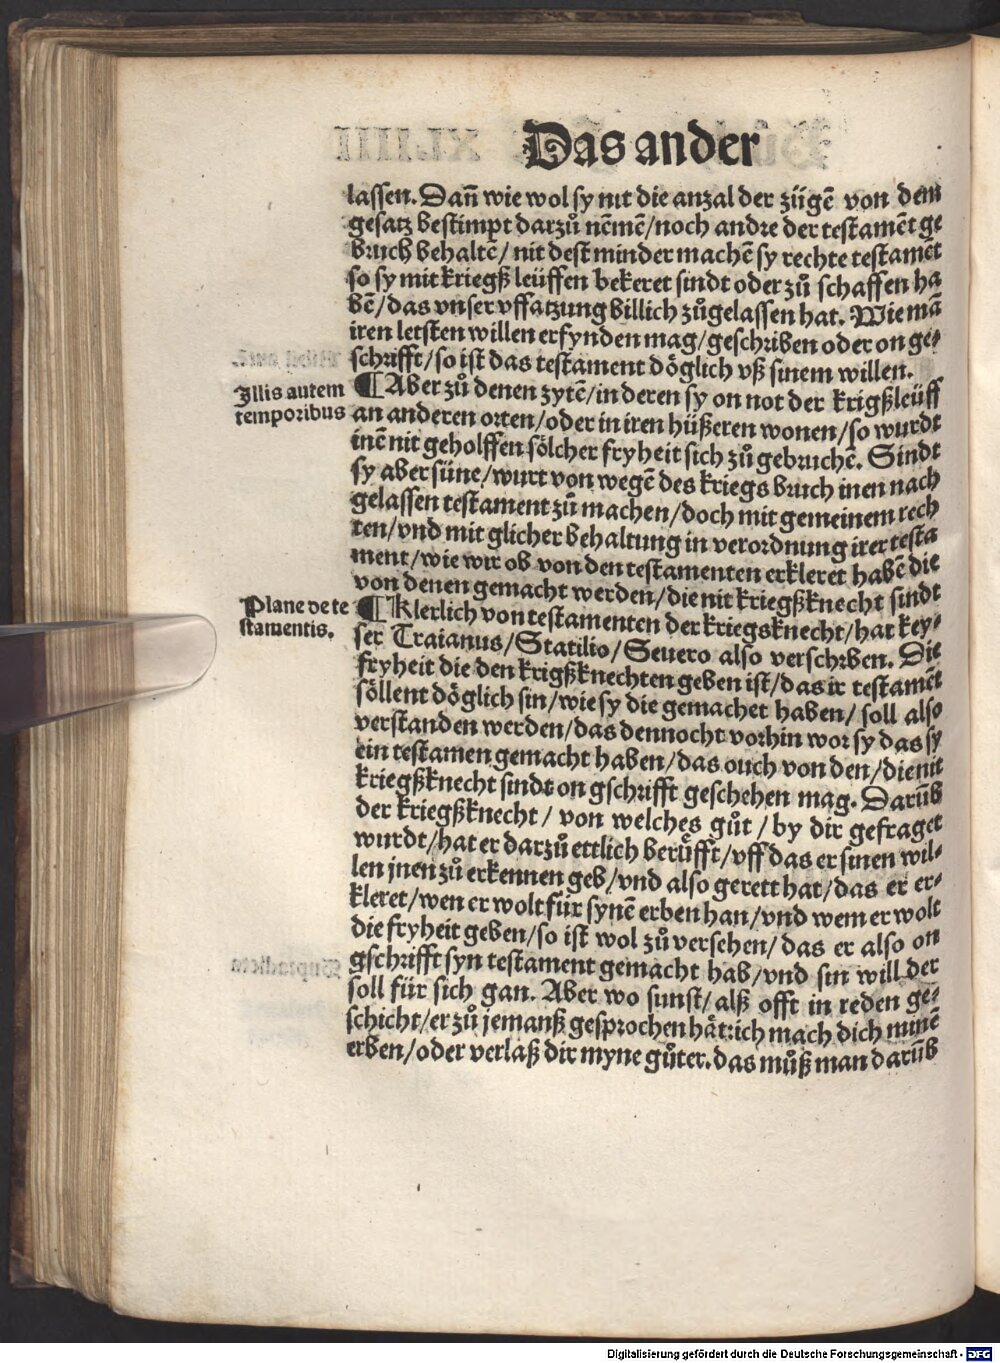 Das ander
lassen. Dañ wie wol sy nit die anzal der zügē von dem
gesatz bestimpt darzů nēmē/noch andre der testamēt ge
bruch behaltē/ nit dest minder machē sy rechte testamēt
so sy mit kriegß leüffen bekeret sindt oder zů schaffen ha
bē/das vnser vffatzung billich zůgelassen hat. Wie mā
iren letsten willen erfynden mag/geschriben oder on ge⸗
schrifft/so ist das testament döglich vß sinem willen.
Illis autem
temporibus
¶ Aber zů denen zytē/in deren sy on not der krigßleüff
an anderen orten/oder in iren hüßeren wonen/so wurdt
inē nit geholffen sölcher fryheit sich zů gebruchē. Sindt
sy aber süne/wurt von wegē des kriegs bruch inen nach
gelassen testament zů machen/doch mit gemeinem rech
ten/vnd mit glicher behaltung in verordnung irer testa
ment/wie wir ob von den testamenten erkleret habē die
von denen gemacht werden/die nit kriegßknecht sindt
Plane de te
stamentis.
¶ Klerlich von testamenten der kriegsknecht/hat key⸗
ser Traianus/Statilio/Seuero also verschrben. Die
fryheit die den krigßknechten geben ist/das ir testamēt
söllent döglich sin/wie sy die gemachet haben/ soll also
verstanden werden/das dennocht vorhin wor sy das sy
ein testamen gemacht haben/das ouch von den/die nit
kriegßknecht sindt on gschrifft geschehen mag. Darūb
der kriegßknecht/ von welches gůt/by dir gefraget
wurdt/hat er darzů ettlich berůfft/vff das er sinen wil⸗
len jnen zů erkennen geb/vnd also gerett hat/das er er⸗
kleret/wen er wolt für synē erben han/vnd wem er wolt
die fryheit geben/so ist wol zů versehen/das er also on
gschrifft syn testament gemacht hab/vnd sin will der
soll für sich gan. Aber wo sunst/alß offt in reden ge⸗
schicht/er zů jemanß gesprochen hät:ich mach dich minē
erben/oder verlaß dir myne gůter. das můß man darūb
Digitalisierung gefördert durch die Deutsche Forschungsgemeinschaft - DFG